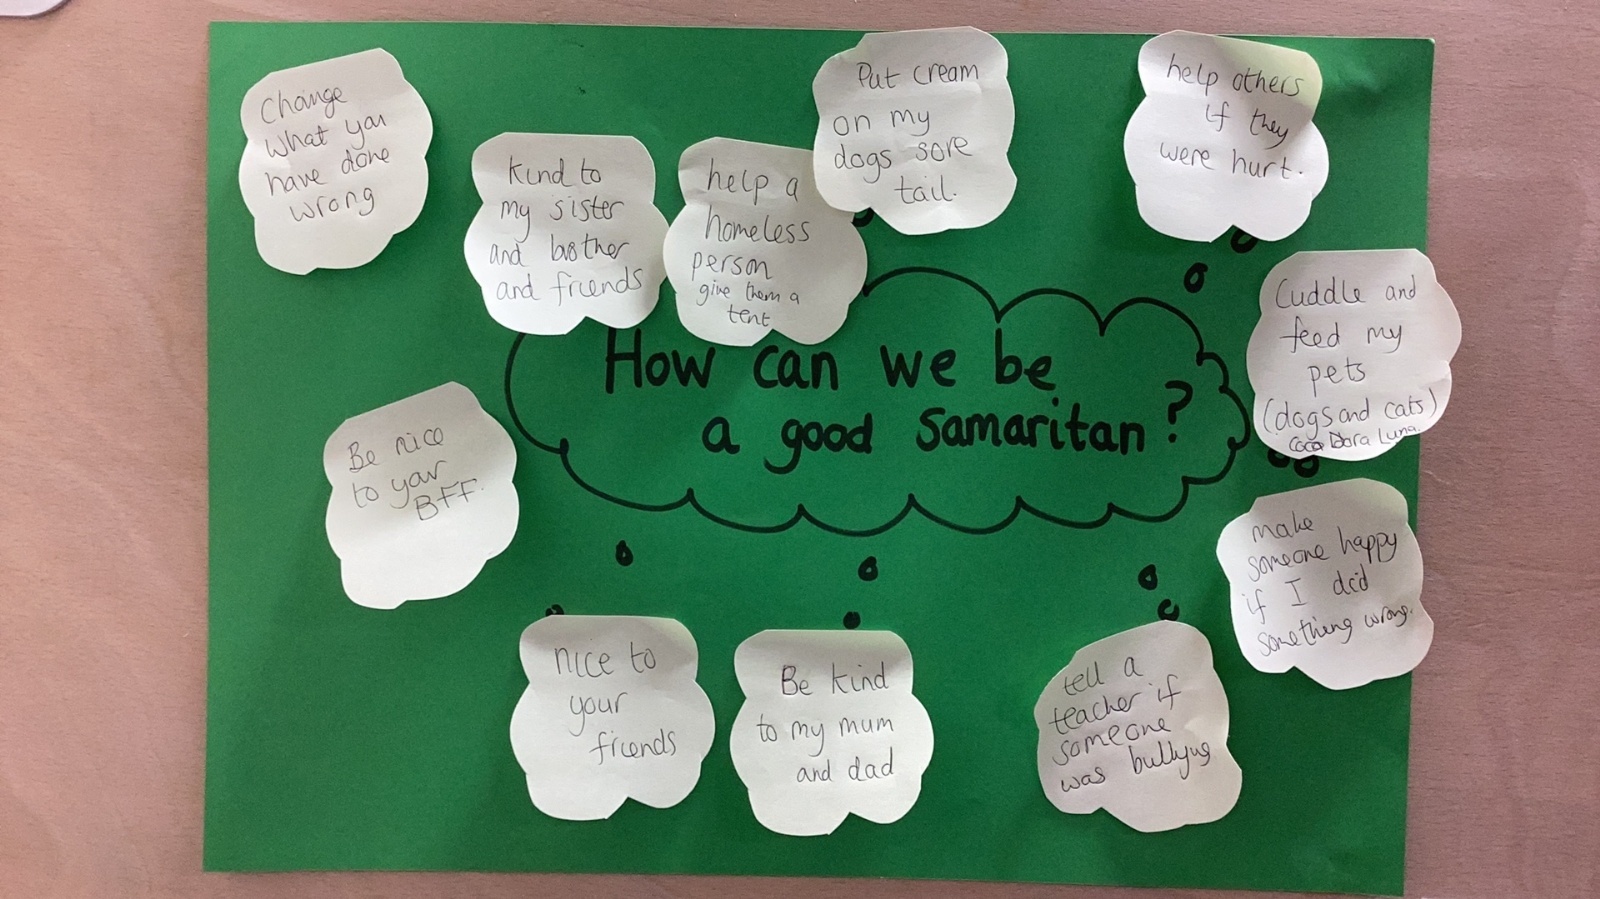 Change
What you
have done
wrong
Kind to
my sister
and brother
and friends
help a
homeless
person
give them a
tent
Put cream
on my
dogs sore
tail.
help others
if they
were hurt.
Cuddle and
feed my
pets
(dogs and cats)
Coco Dora Luna.
How can we be
a good Samaritan?
Be nice
to your
BFF.
make
someone happy
if I did
something wrong.
nice to
your
friends
Be kind
to my mum
and dad
tell a
teacher if
someone
was bullying